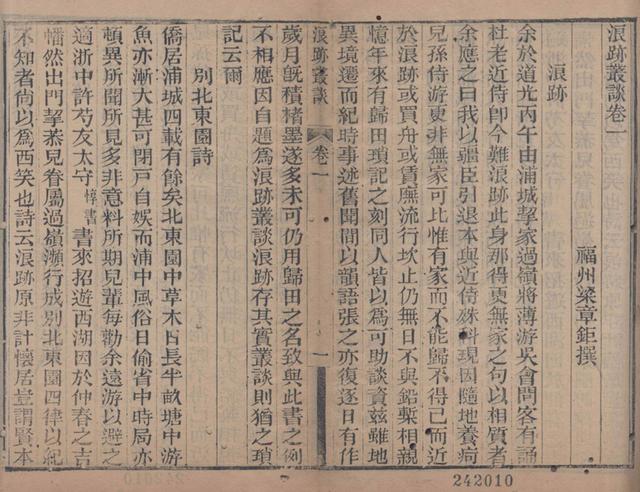 浪跡叢談卷一
福州梁章鉅撰
浪跡
余於道光丙午由浦城挈家過嶺將薄游吳會問客有誦
杜老近侍卽今難浪跡此身那得更無家之句以相質者
余應之曰我以疆臣引退本與近侍殊科現因隨地養疴
兒孫侍游更非無家可比惟有家而不能歸不得已而近
於浪跡或買舟或賃廡流行坎止仍無日不與鉛槧相親
憶年來有歸田瑣記之刻同人皆以爲可助談資茲雖地
異境遷而紀時事述舊聞間以韻語張之亦復逐日有作
浪跡叢談
卷一
一
歲月旣積楮墨遂多未可仍用歸田之名致與此書之例
不相應因自題爲浪跡叢談浪跡存其實叢談則猶之瑣
記云爾
別北東園詩
僑居浦城四載有餘矣北東園中草木日長半畝塘中游
魚亦漸大甚可閉戸自娛而浦中風俗日偷省中時局亦
頓異所聞所見多非意料所期兒輩每勸余遠游以避之
適浙中許芍友太守 惇書 書來招遊西湖因於仲春之吉
幡然出門挈荼兒眷屬過嶺瀕行成別北東園四律以紀
不知者尚以爲西笑也詩云浪跡原非計懷居豈謂賢本
242010